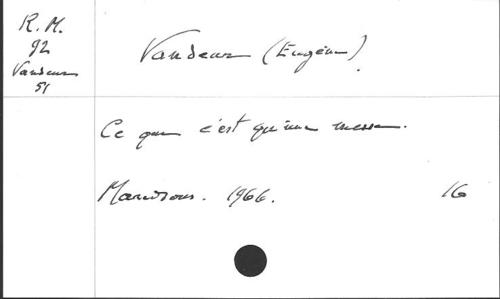 R. M.
92
Vandeur
51
Vandeur (Eugène).
Ce que c'est qu'une messe.
Maredsous. 1966. 16